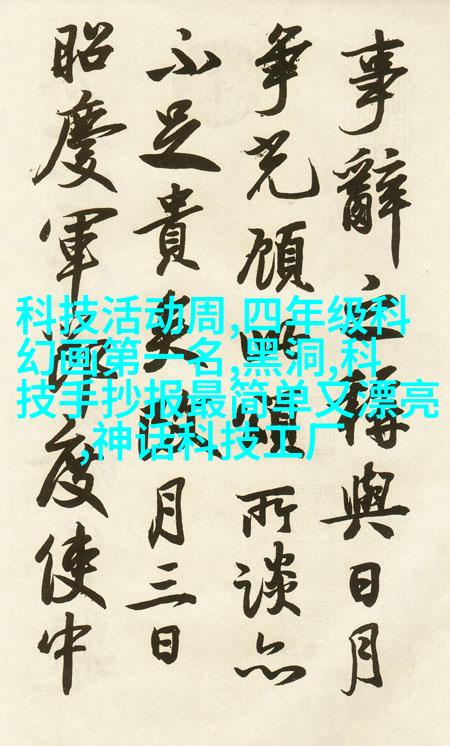 事辭與日月
爭光顧所談亦
不足貴月三日
昭慶軍節度使中
科技活动周,四年级科
幻画第一名,黑洞,科
技手抄报最简单又漂亮
,神话科技工厂